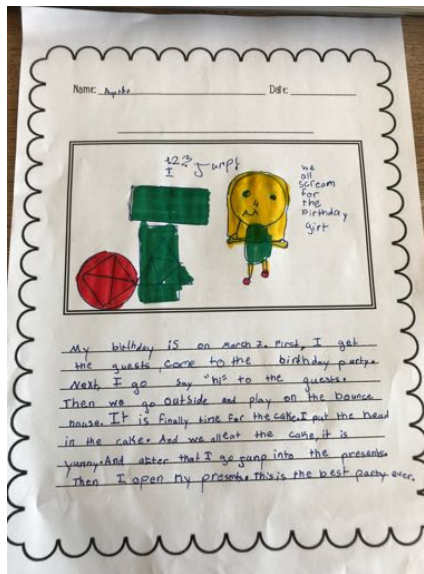 Name: Ayesha Date:
123 Jump!
I
we
all
scream
for
the
birthday
girl
My birthday is on March 2. First, I get
the guests come to the birthday party.
Next, I go say "hi" to the guests.
Then we go outside and play on the bounce
house. It is finally time for the cake. I put the head
in the cake. And we all eat the cake, it is
yummy. And after that I go jump into the presents.
Then I open my presents. This is the best party ever.